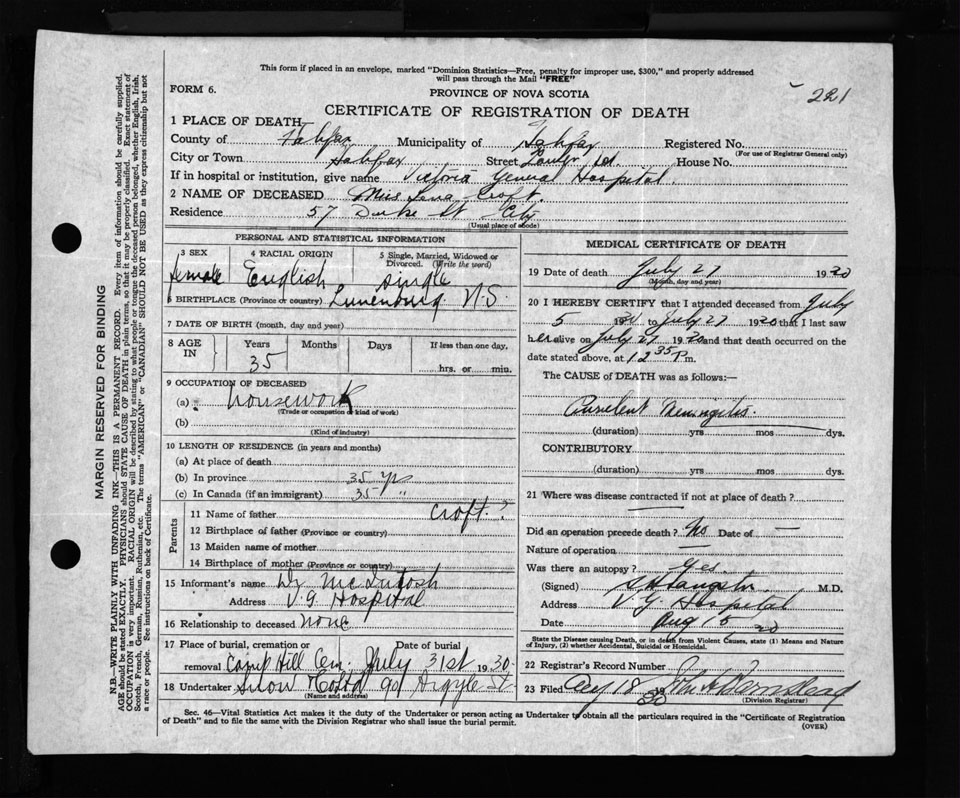 This form if placed in an envelope, marked "Dominion Statistics—Free, penalty for improper use, $300," and properly addressed
will pass through the Mail "FREE"
221
FORM 6.
PROVINCE OF NOVA SCOTIA
CERTIFICATE OF REGISTRATION OF DEATH
1 PLACE OF DEATH
County of Halifax Municipality of Halifax Registered No.
(For use of Registrar General only)
City or Town Halifax Street House No.
If in hospital or institution, give name Victoria General Hospital.
2 NAME OF DECEASED Miss Lena Croft.
Residence 57 Duke St City
(Usual place of abode)
PERSONAL AND STATISTICAL INFORMATION
3 SEX
female
4 RACIAL ORIGIN
English
5 Single, Married, Widowed or
Divorced. (Write the word)
single
6 BIRTHPLACE (Province or country) Lunenburg N.S.
7 DATE OF BIRTH (month, day and year)
8 AGE IN Years Months Days If less than one day,
35 hrs. or min.
9 OCCUPATION OF DECEASED
(a) housework
(Trade or occupation or kind of work)
(b)
(Kind of industry)
10 LENGTH OF RESIDENCE (in years and months)
(a) At place of death
(b) In province 35 yrs
(c) In Canada (if an immigrant) 35 "
Parents
11 Name of father Croft ?
12 Birthplace of father (Province or country)
13 Maiden name of mother
14 Birthplace of mother (Province or country)
15 Informant's name Dr McIntosh
Address V.G Hospital
16 Relationship to deceased none
17 Place of burial, cremation or removal Date of burial
Camp Hill Cem. July 31st 1930
18 Undertaker Snow & Co Ltd 90 Argyle St
(Name and address)
MEDICAL CERTIFICATE OF DEATH
19 Date of death July 27 1930
(Month, day and year)
20 I HEREBY CERTIFY that I attended deceased from July
5 1930 to July 27 1930 that I last saw
her alive on July 27 1930 and that death occurred on the
date stated above, at 12 35 P.m.
The CAUSE of DEATH was as follows:—
Purulent Meningitis.
(duration) yrs mos dys.
CONTRIBUTORY
(duration) yrs mos dys.
21 Where was disease contracted if not at place of death? —
Did an operation precede death? No Date of —
Nature of operation —
Was there an autopsy? Yes
(Signed) M.D.
Address V.G Hospital
Date Aug 15 30
State the Disease causing Death, or in death from Violent Causes, state (1) Means and Nature
of Injury, (2) whether Accidental, Suicidal or Homicidal.
22 Registrar's Record Number
23 Filed Aug 18 1930
(Division Registrar)
Sec. 46—Vital Statistics Act makes it the duty of the Undertaker or person acting as Undertaker to obtain all the particulars required in the "Certificate of Registration
of Death" and to file the same with the Division Registrar who shall issue the burial permit.
(OVER)
MARGIN RESERVED FOR BINDING
N.B.—WRITE PLAINLY WITH UNFADING INK—THIS IS A PERMANENT RECORD. Every item of information should be carefully supplied.
AGE should be stated EXACTLY. PHYSICIANS should STATE CAUSE OF DEATH in plain terms, so that it may be properly classified. Exact statement of
OCCUPATION is very important. RACIAL ORIGIN will be described by stating to what people or tongue the deceased person belonged, whether English, Irish,
Scotch, French, German, Russian, Ruthenian, etc. The terms "AMERICAN" or "CANADIAN" SHOULD NOT BE USED as they express citizenship but not
a race or people. See instructions on back of Certificate.